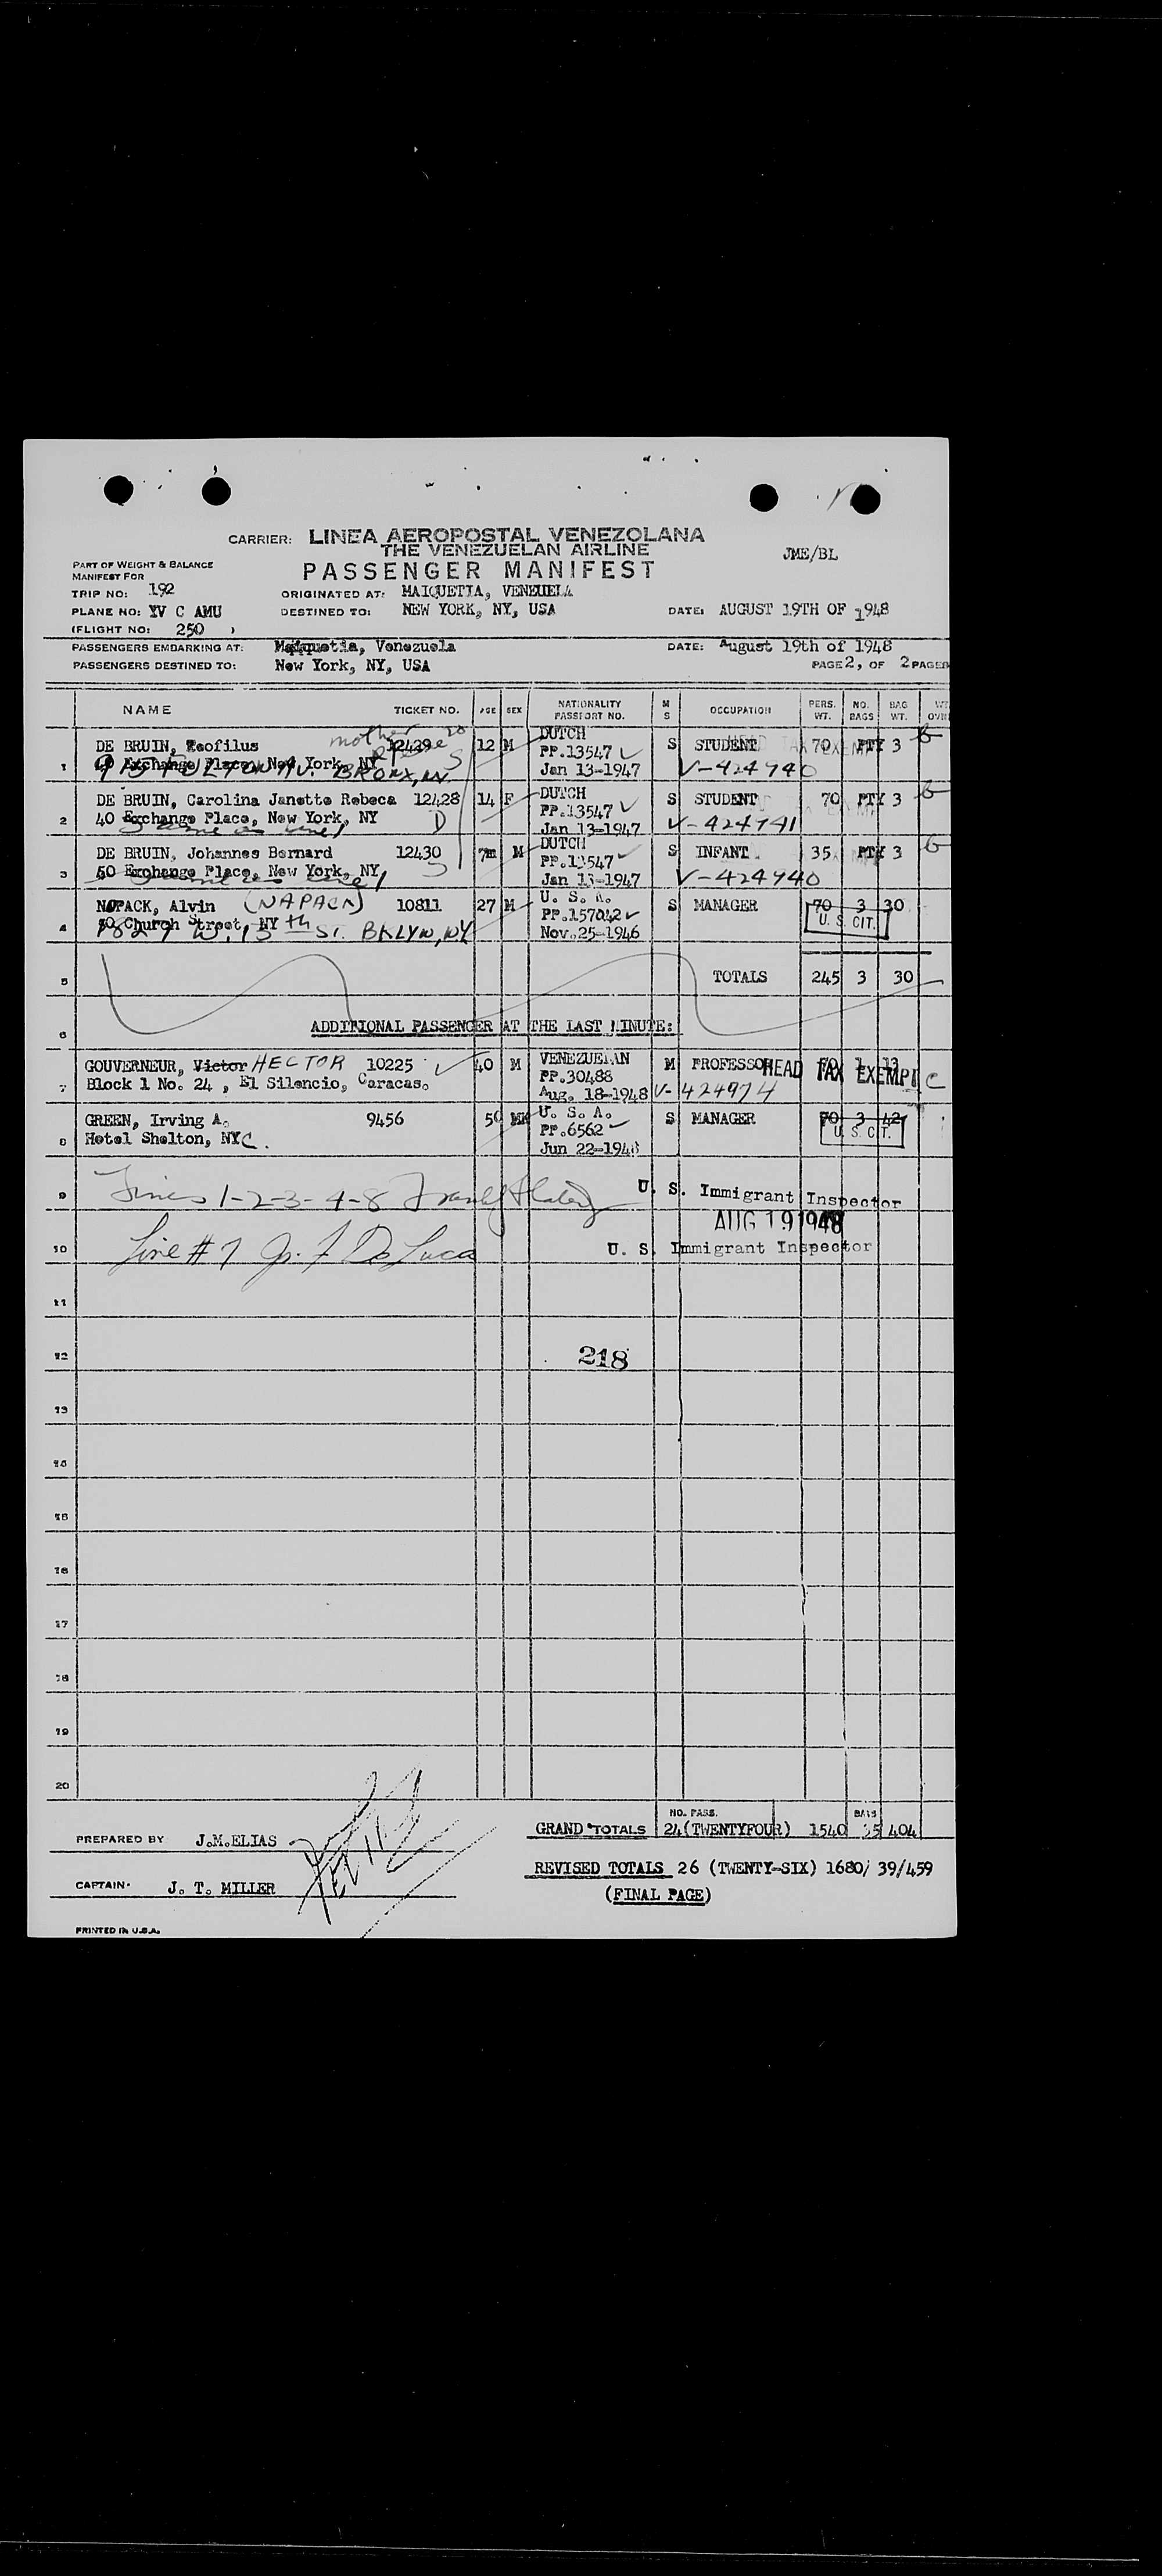 CARRIER: LINEA AEROPOSTAL VENEZOLANA
THE VENEZUELAN AIRLINE
JME/BL
PART OF WEIGHT & BALANCE
MANIFEST FOR
PASSENGER MANIFEST
TRIP NO: 192 ORIGINATED AT: MAIQUETIA, VENEZUELA
PLANE NO: YV C AMU DESTINED TO: NEW YORK, NY, USA DATE: AUGUST 19TH OF 1948
(FLIGHT NO: 250 )
PASSENGERS EMBARKING AT: Maiquetia, Venezuela DATE: August 19th of 1948
PASSENGERS DESTINED TO: New York, NY, USA PAGE 2, OF 2 PAGES
NAME TICKET NO. AGE SEX NATIONALITY PASSPORT NO. M S OCCUPATION PERS. WT. NO. BAGS BAG WT.
mother
DE BRUIN, Teofilus 12429 12 M DUTCH S STUDENT 70 PTY 3
PP.13547
1 Exchange Place, New York, NY Jan 13-1947 V-424740
FULTON AV. BRONX, NY
DE BRUIN, Carolina Janette Rebeca 12428 14 F DUTCH S STUDENT 70 PTY 3
PP.13547
2 40 Exchange Place, New York, NY D Jan 13-1947 V-424741
Same as line 1
DE BRUIN, Johannes Bernard 12430 7m M DUTCH S INFANT 35 PTY 3
PP.13547
3 Exchange Place, New York, NY Jan 13-1947 V-424740
Same as line 1
NOPACK, Alvin (NAPACK) 10811 27 M U. S. A. S MANAGER 70 3 30
PP.157042 U. S. CIT.
4 Church Street, NY Nov.25-1946
W. 13th St. BKLYN, NY
5 TOTALS 245 3 30
6 ADDITIONAL PASSENGER AT THE LAST MINUTE:
GOUVERNEUR, Victor HECTOR 10225 40 M VENEZUELAN M PROFESSOR 70 1 13
PP.30488 HEAD TAX EXEMPT C
7 Block 1 No. 24 , El Silencio, Caracas. Aug. 18-1948 V-424974
GREEN, Irving A. 9456 50 U. S. A. S MANAGER 70 3 42
PP.6562 U. S. CIT.
8 Hotel Shelton, NYC. Jun 22-1948
9 Lines 1-2-3-4-8 U. S. Immigrant Inspector
AUG 19 1948
10 Line # 7 De Luca U. S. Immigrant Inspector
11
12 218
13
14
15
16
17
18
19
20
NO. PASS. BAGS
PREPARED BY J.M.ELIAS GRAND TOTALS 24(TWENTYFOUR) 1540 35 404
REVISED TOTALS 26 (TWENTY-SIX) 1680/ 39/459
CAPTAIN. J. T. MILLER (FINAL PAGE)
PRINTED IN U.S.A.